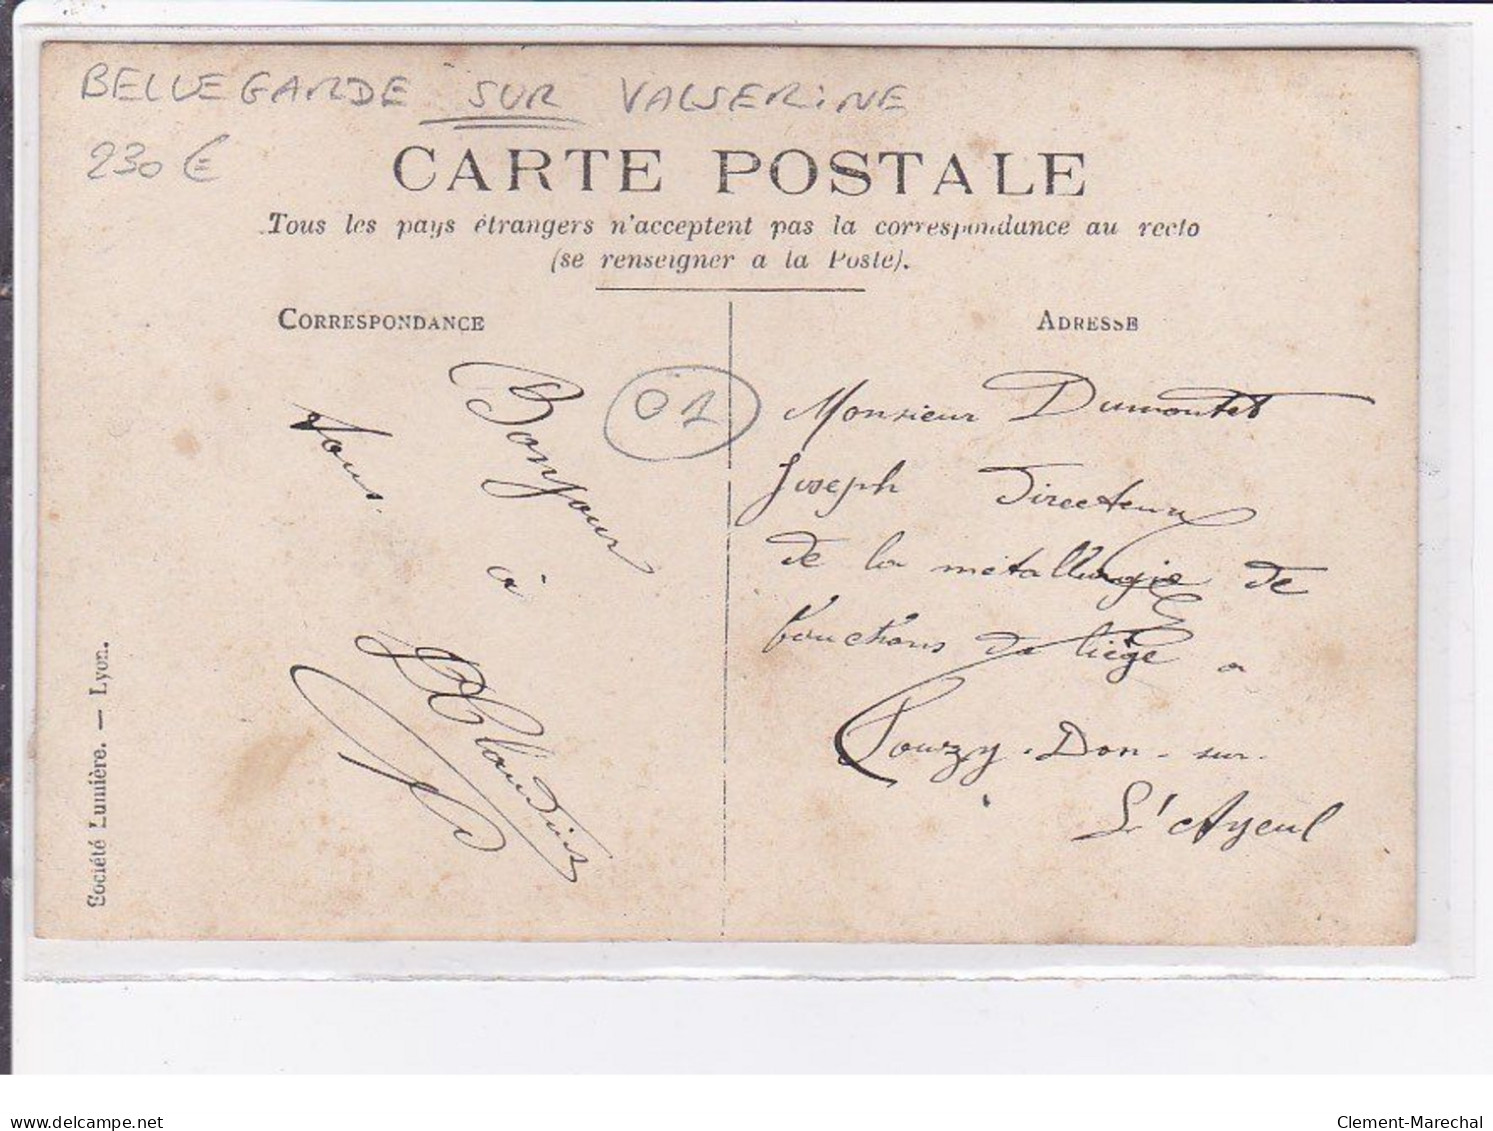 BELLEGARDE SUR VALSERINE
230 €
CARTE POSTALE
Tous les pays étrangers n'acceptent pas la correspondance au recto
(se renseigner a la Poste).
CORRESPONDANCE
ADRESSE
01
Bonjour
à
tous.
Claudius
Monsieur Dumontet
Joseph Directeur
de la métallurgie de
bouchons de liège a
Pouzzy-Don-sur-
L'Ayeul
Société Lumière. — Lyon.
delcampe.net
Clement-Marechal